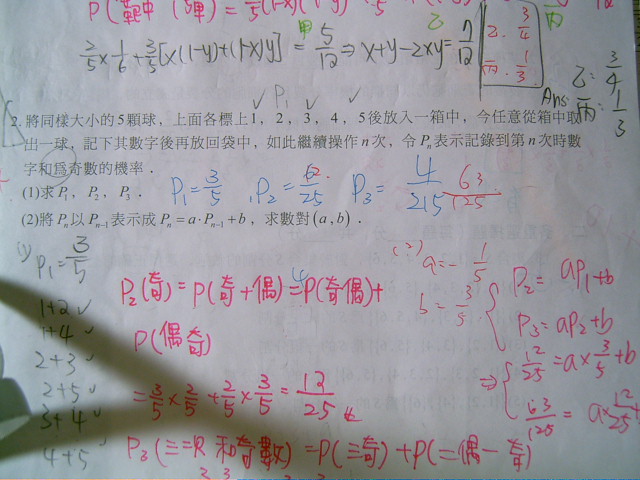 P(靶中1彈) = 1/5(1-x)(1-y)
2/5 × 1/6 + 3/5[x(1-y)+(1-x)y] = 5/12 ⇒ x+y-2xy = 7/12
甲
乙
丙
乙. 3/4
丙. 1/3
Ans: 乙: 3/4
丙: 1/3
P1
2. 將同樣大小的 5 顆球，上面各標上 1，2，3，4，5 後放入一箱中，今任意從箱中取
出一球，記下其數字後再放回袋中，如此繼續操作 n 次，令 Pn 表示記錄到第 n 次時數
字和為奇數的機率．
(1)求 P1，P2，P3． P1=3/5 , P2= /25 P3= 4/215 63/125
(2)將 Pn 以 Pn-1 表示成 Pn=a·Pn-1+b，求數對(a,b)．
(1)
P1=3/5
1+2 ✓
1+4 ✓
2+3 ✓
2+5 ✓
3+4 ✓
4+5 ✓
P2(奇) = P(奇+偶) = P(奇偶)+
P(偶奇)
= 3/5 × 2/5 + 2/5 × 3/5 = 12/25
P3(三次和奇數) = P(三奇) + P(二偶一奇)
(2) a=-1/5
b=3/5
P2= aP1+b
P3= aP2+b
⇒ 12/25 = a×3/5+b
63/125 = a×12/25+